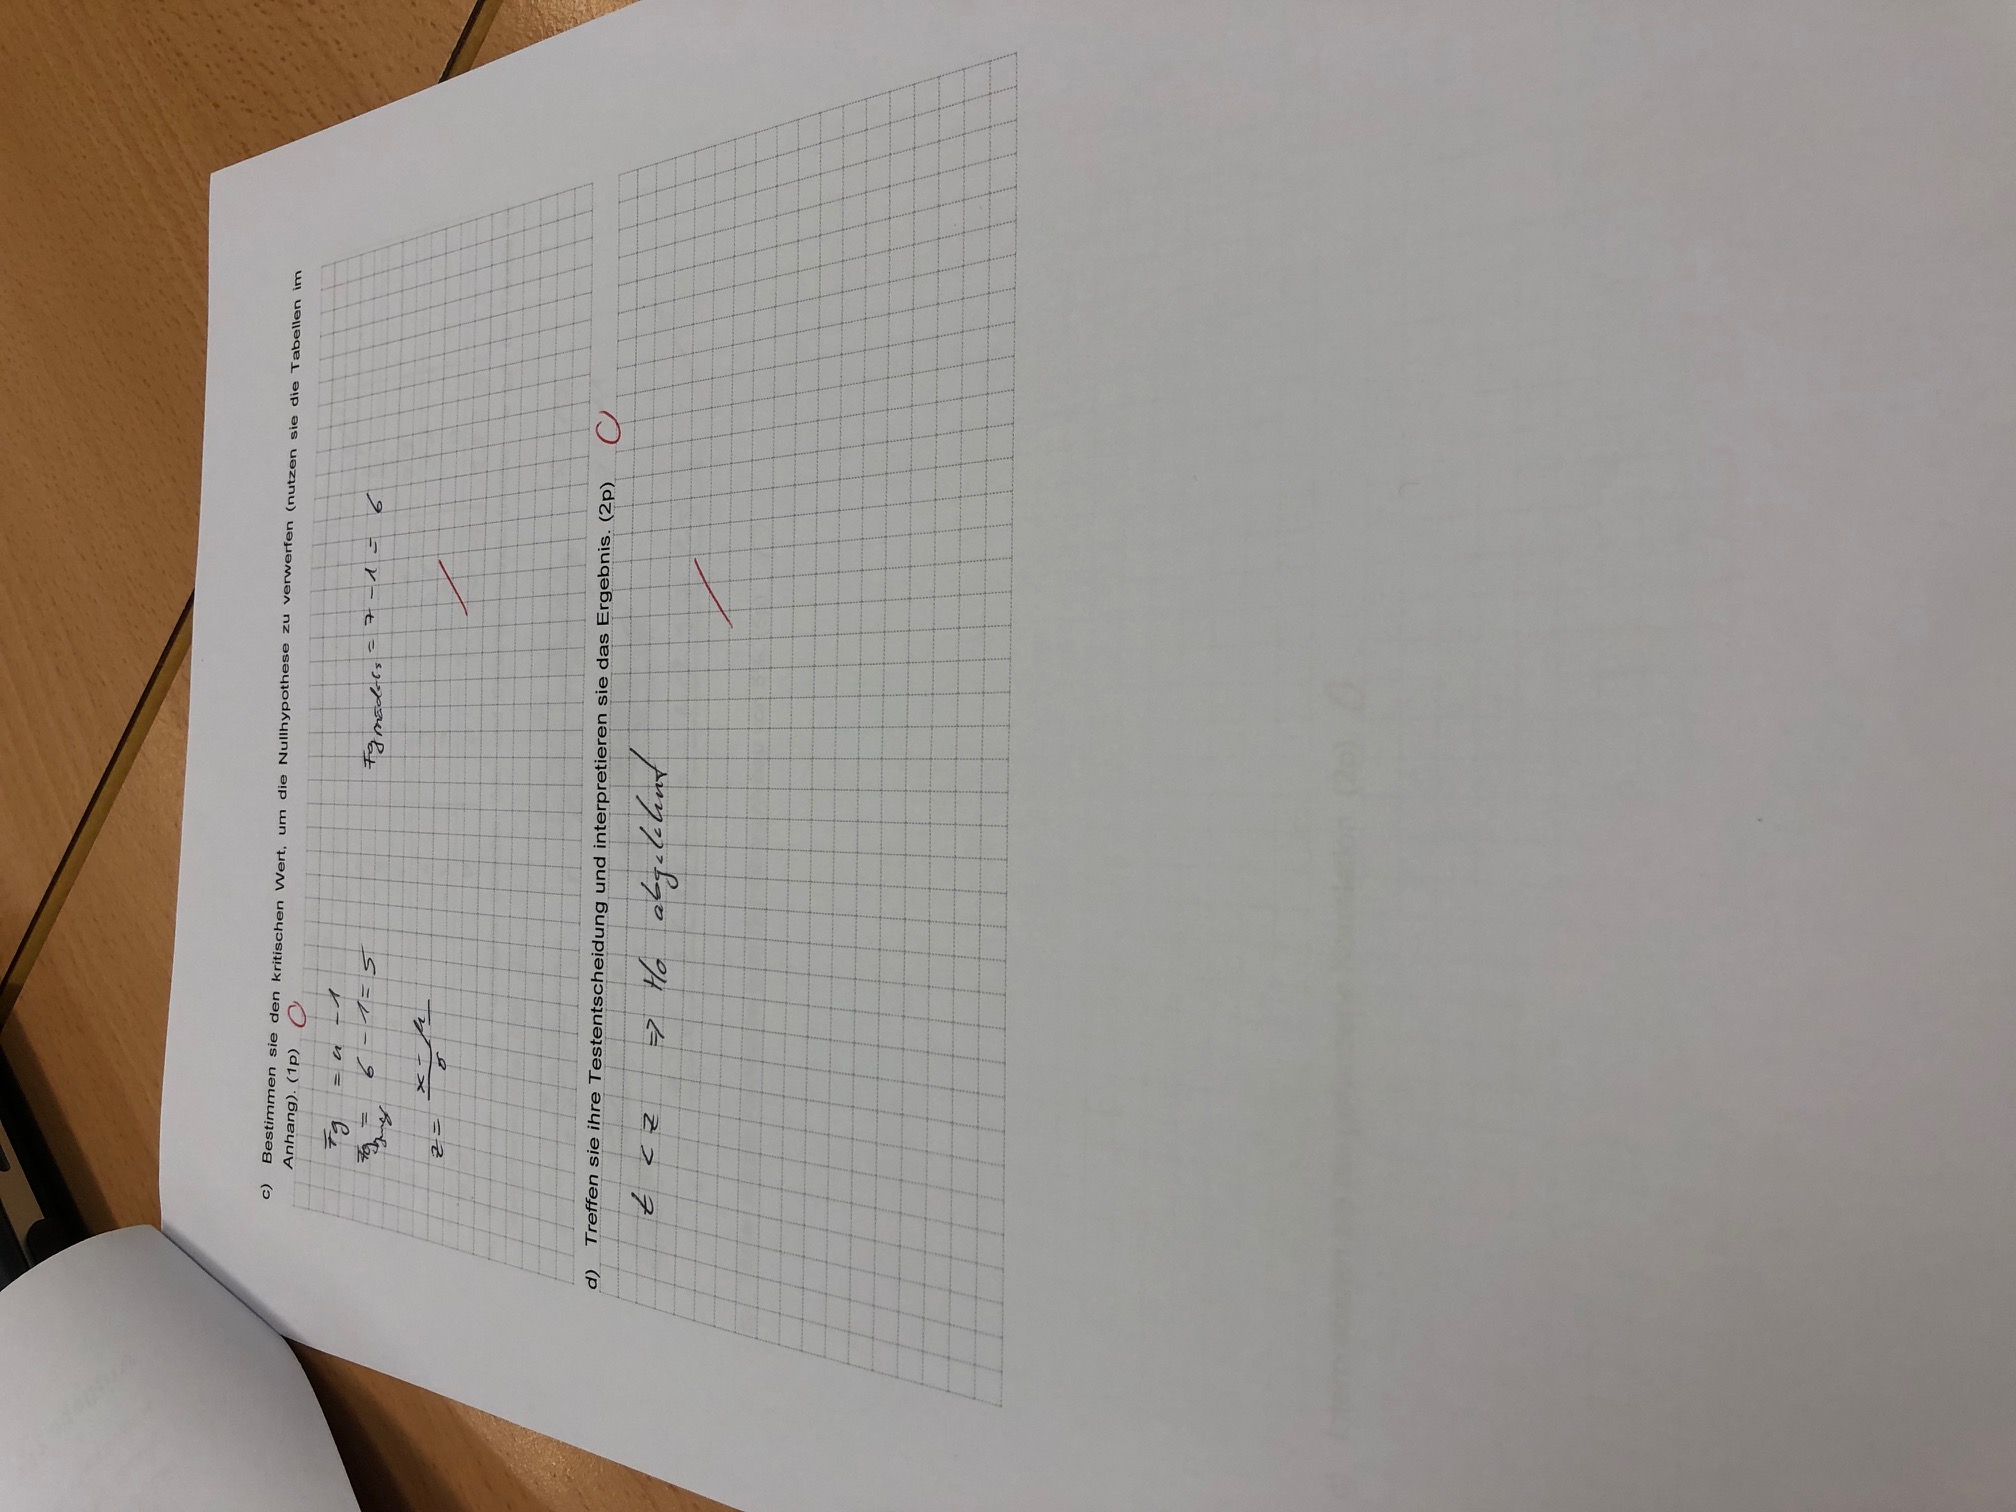 c) Bestimmen sie den kritischen Wert, um die Nullhypothese zu verwerfen (nutzen sie die Tabellen im
Anhang). (1p) 0
Fg = n - 1
Fg = 6 - 1 = 5 Fg mädels = 7 - 1 = 6
z = x - μ / σ
d) Treffen sie ihre Testentscheidung und interpretieren sie das Ergebnis. (2p) 0
t < z => Ho abgelehnt